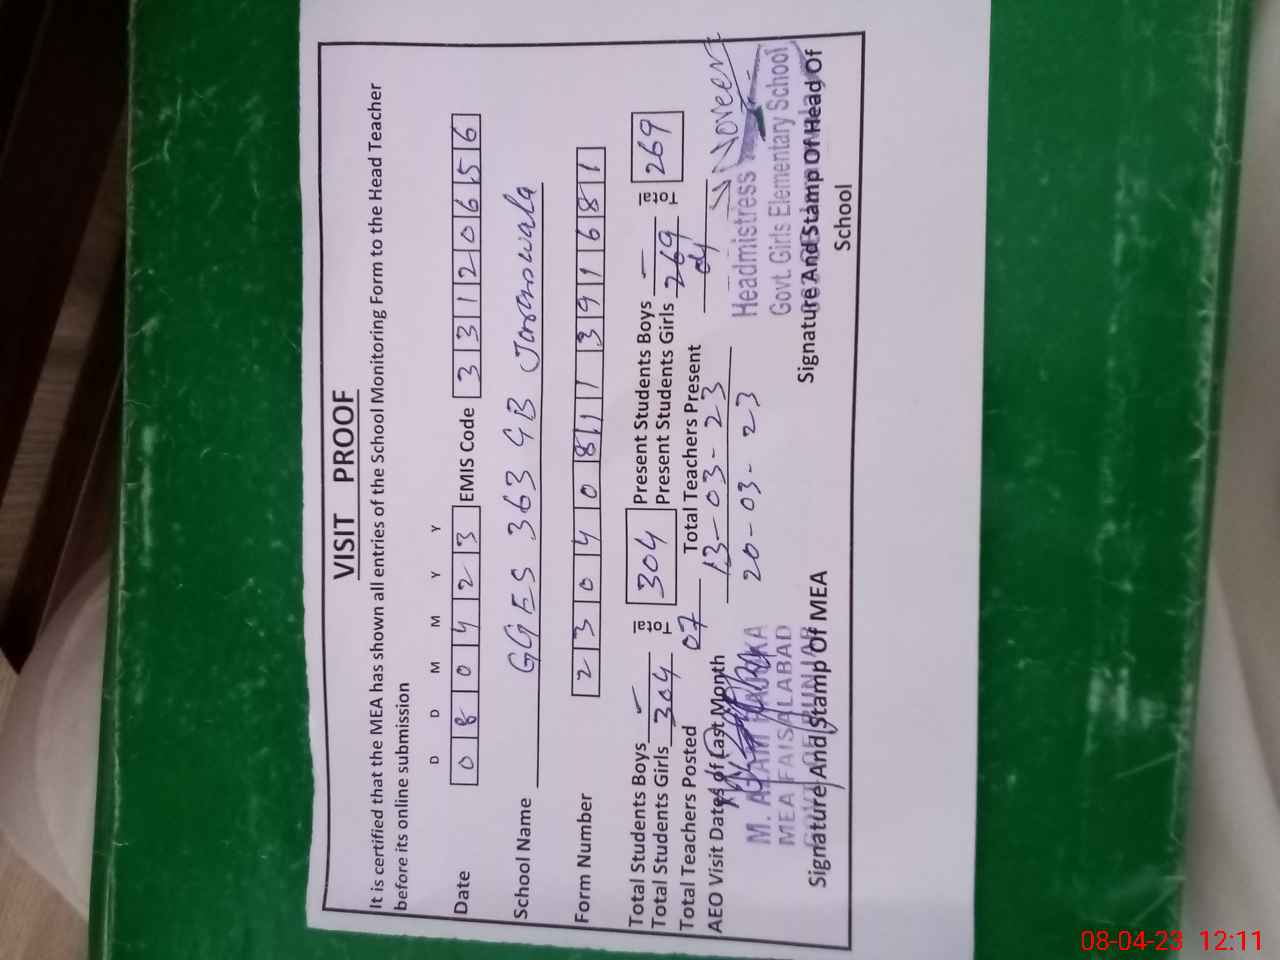 VISIT PROOF
It is certified that the MEA has shown all entries of the School Monitoring Form to the Head Teacher
before its online submission
D D M M Y Y
Date 0 8 0 4 2 3 EMIS Code 3 3 1 2 0 6 5 6
School Name GGES 363 GB Jaranwala
Form Number 2 3 0 4 0 8 1 1 3 9 1 6 8 1
Total Students Boys - Total 304 Present Students Boys - Total 269
Total Students Girls 304 Present Students Girls 269
Total Teachers Posted 07 Total Teachers Present
AEO Visit Dates of Last Month 13-03-23
20-03-23
Noreen
M. AZAM
MEA FAISALABAD
GOVT. OF PUNJAB
Headmistress
Govt. Girls Elementary School
Signature And Stamp Of MEA Signature And Stamp Of Head Of
School
08-04-23 12:11